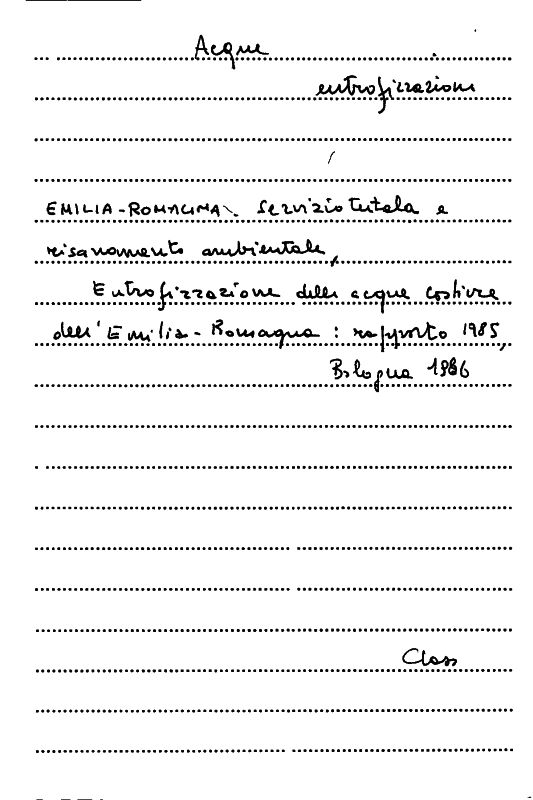 Acque
eutrofizzazioni
EMILIA-ROMAGNA. Servizio tutela e
risanamento ambientale,
Eutrofizzazione delle acque costiere
dell'Emilia-Romagna : rapporto 1985,
Bologna 1986
Class